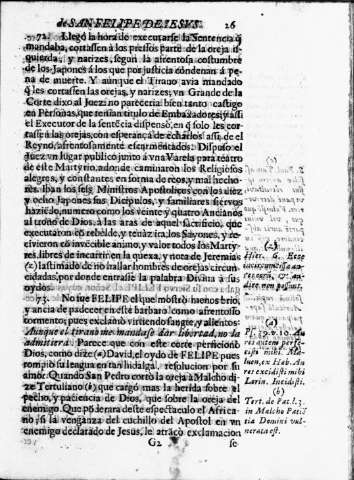 de SAN FELIPE DE JESVS. 26
72. Llegó la hora de executarse la Sentencia q̃
mandaba, cortassen á los pressos parte de la oreja is-
quierda, y narizes, segun la afrentosa costumbre
de los Japones á los que por justicia condenan á pe-
na de muerte. Y aunque el Tirano avia mandado
q̃ les cortassen las orejas, y narizes; vn Grande de la
Corte dixo al Juez no parecería bien tanto castigo
en Personas, que tenian titulo de Embaxadores; y assi
el Executor de la sentẽcia dispensó, en q̃ solo les cor-
tassen las orejas, con esperanza de echarlos assi de el
Reyno, afrentosamente escarmentados. Dispuso el
Juez vn lugar publico junto á vna Varela para teatro
de este Martyrio, adonde caminaron los Religiosos
alegres, y constantes en forma de reos, y mal hecho-
res. Iban los seis Ministros Apostolicos con los diez
y ocho Japones sus Dicipulos, y familiares siervos
haziẽdo, numero como los veinte y quatro Ancianos
al trono de Dios, á las aras de aquel sacrificio, que
executaron cõ rebelde, y tenáz ira los Sayones, y re-
civieron cõ invecible animo, y valor todos los Marty-
res, libres de incurrir en la quexa, y nota de Jeremias
(z) lastimado de no hallar hombres de orejas circun-
cidadas, por donde entrasse la palabra Divina á sus
oydos.
73. No fue FELIPE el que mostró menos brio,
y ancia de padecer en este barbaro como afrentosso
tormento; pues exclamó virtiendo sangre, y alientos:
Aunque el tirano me mandasse dar libertad, no la
admitiera. Parece que con este corte perficionó
Dios, como dize (a) David, el oydo de FELIPE pues
rompió su lengua en tan hidalga, resolucion por su
amor. Quando San Pedro cortó la oreja á Malcho di-
ze Tertuliano (b) que cargó mas la herida sobre el
pecho, y paciencia de Dios, que sobre la oreja del
enemigo. Que põderara deste espectaculo el Africa-
no; si la venganza del cuchillo del Apostol en vn
enemigo declarado de Jesus, le atracó exclamacion
G2 se
(z)
Hier. 6. Ecce
incircumcisæ au-
res eorũ, & au-
dire non possunt.
(a)
Ps. 39. v. 10. Au-
res autem perfe-
cisti mihi. Ma-
luen, ex Heb. Au-
res excidisti mihi
Larin. Incidisti.
(b)
Tert. de Pat. l. 3.
in Malcho Patiẽ-
tia Domini vul-
nerata est.